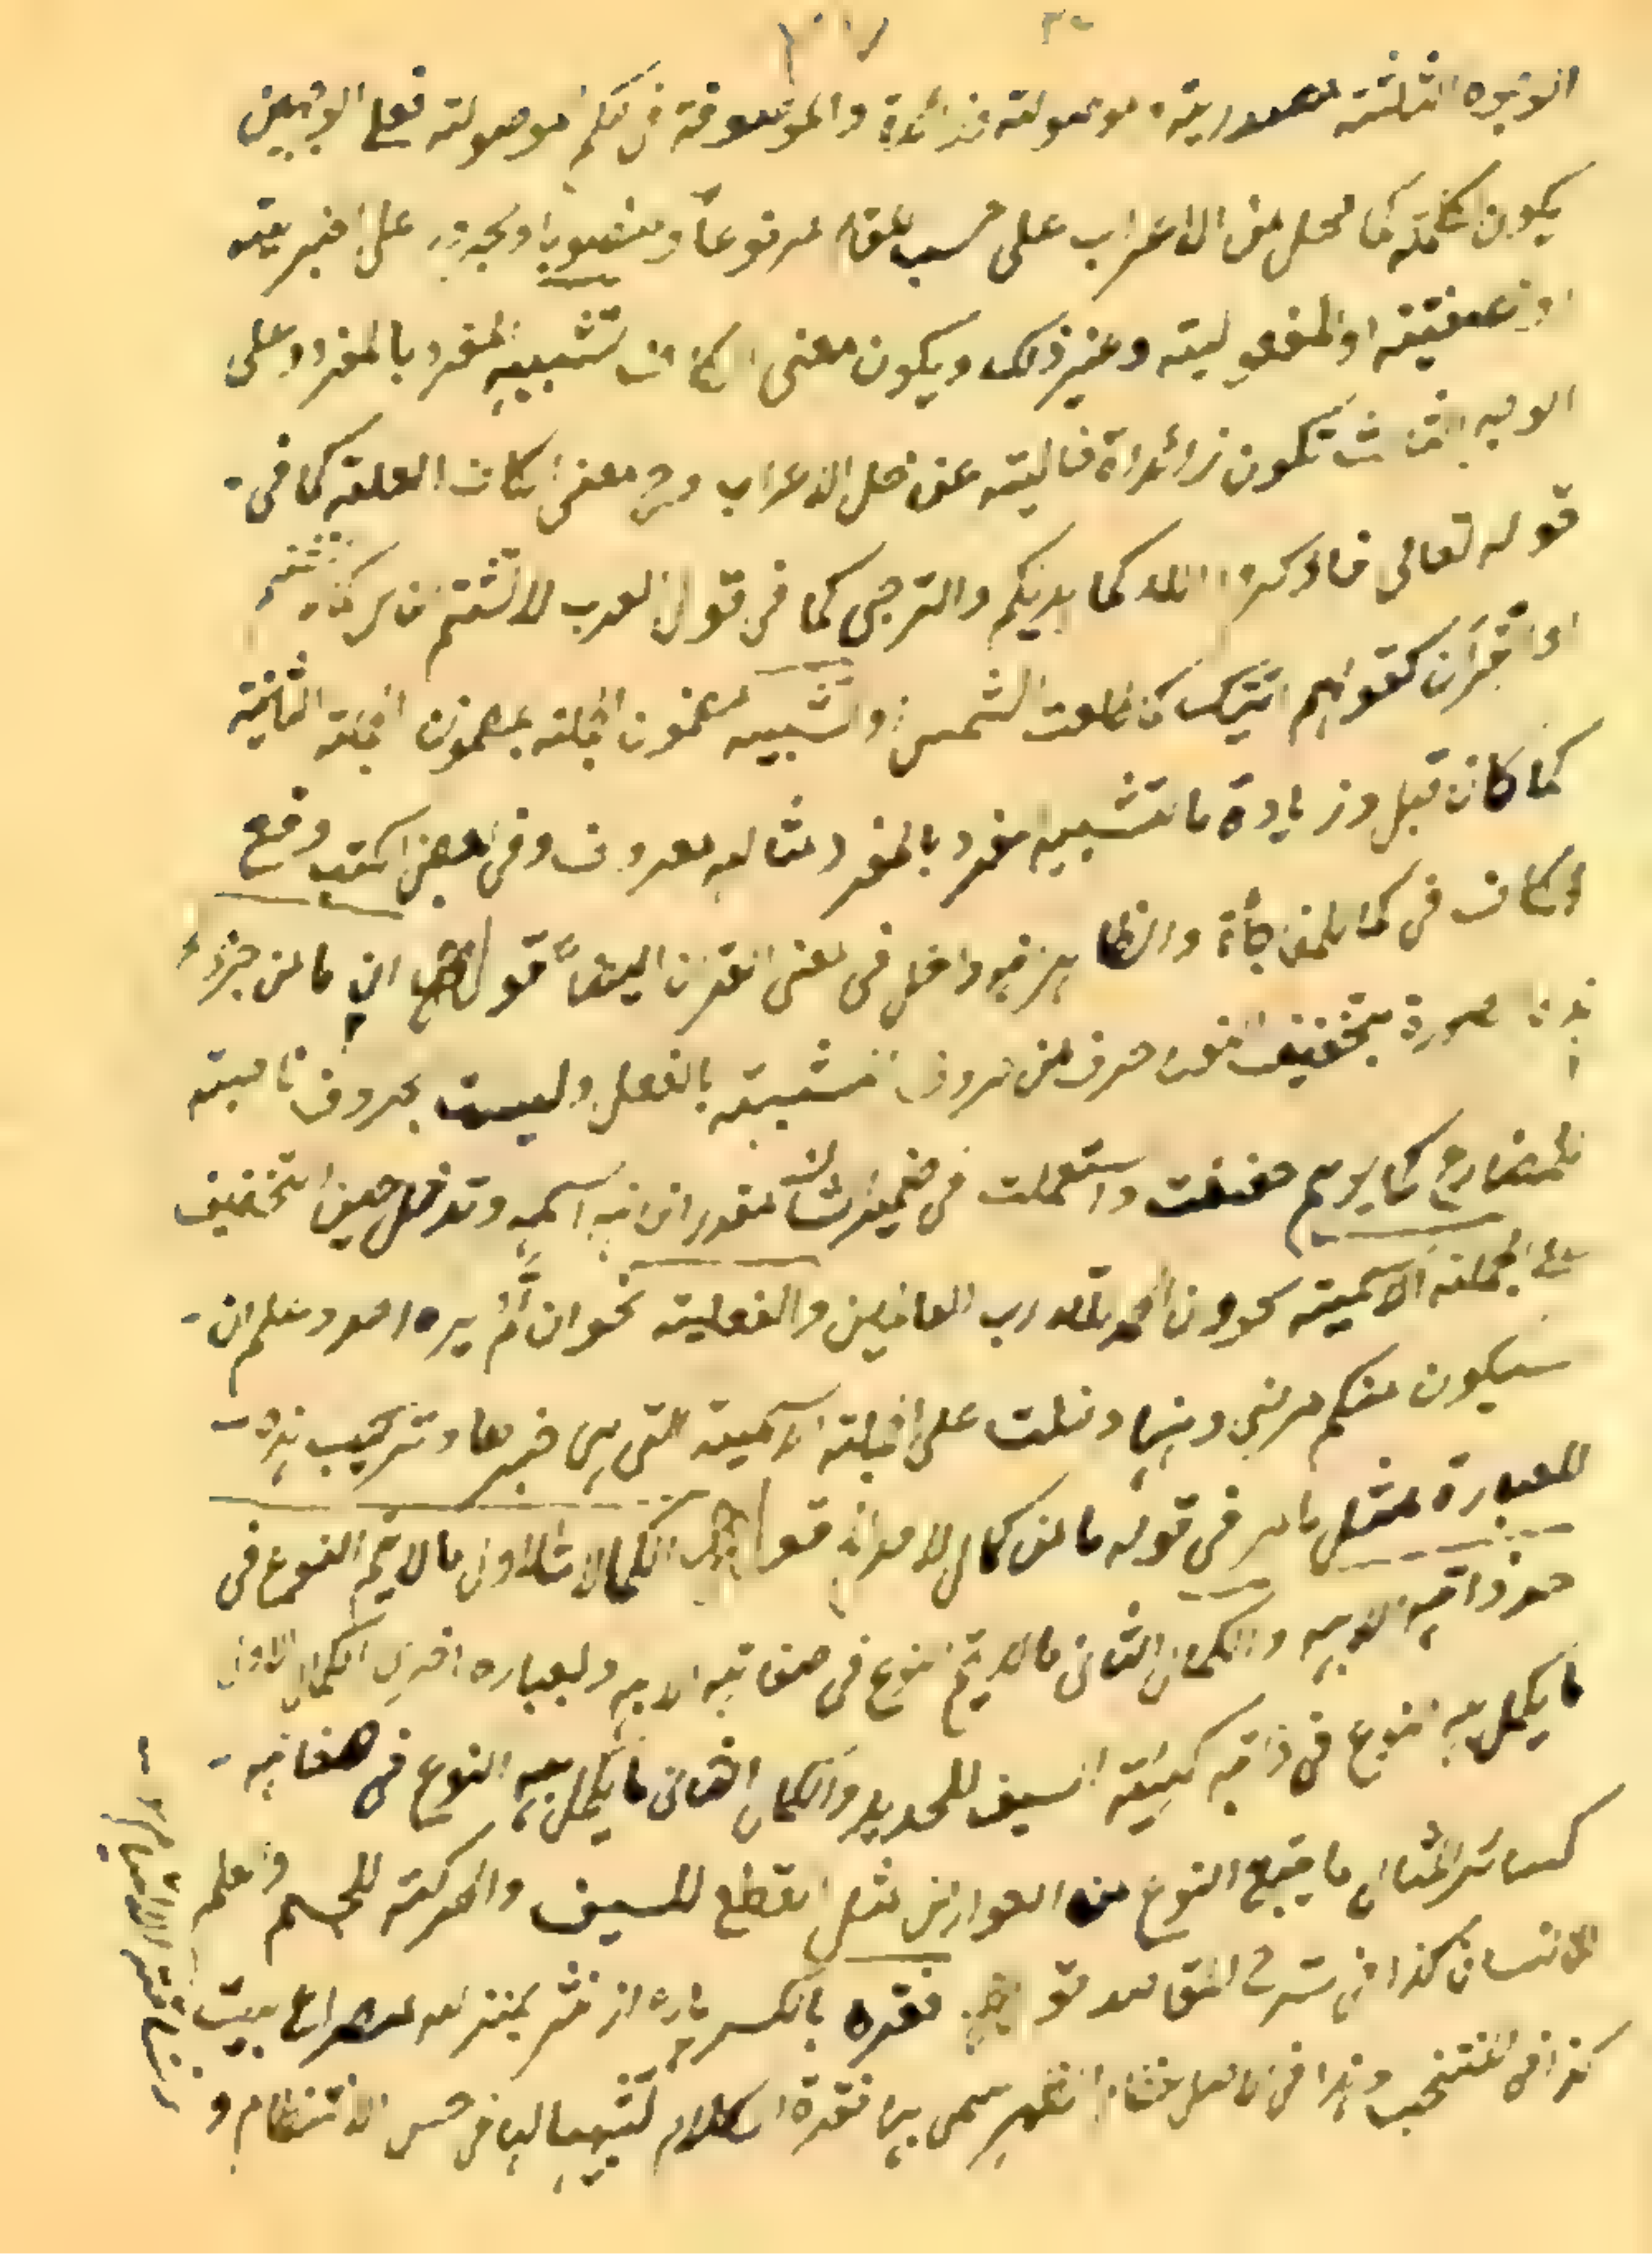 الوجوه الثلثة مصدرية موصولة زائدة والموصوفة فى حكم موصولة فعلى الوجهين
يكون كلمة كما محل من الاعراب على حسب مقام مرفوعا ومنصوبا او مجرورا على الخبرية
او صفتية او المفعولية وغير ذلك ويكون معنى الكاف تشبيه المفرد بالمفرد وعلى
الوجه الثالث تكون زائدة خالية عن محل الاعراب و معنى الكاف العلة كما فى
قوله تعالى فاذكروا الله كما هديكم والترجى كما فى قول العرب لا تشتم الناس كما لا تشتم
او القران كقولهم اتيتك كما طلعت الشمس والتشبيه مضمون الجملة بمضمون الجملة الثانية
كما كان قبل وزيادة ما تشبيه مفرد بالمفرد مثاله معروف وفى بعض الكتب وقع
الكاف فى كما بلمفاجأة والظاهر فهو داخل فى معنى القران ايضا قوله ان ما من جزء
هذه صورة بتخفيف النون حرف من حروف المشبهة بالفعل وليست بحروف ناصبة
للمضارع كما يوهم خففت واستعملت فى ضمير شان مقدر اى انه اسمه وتدخل حين التخفيف
على الجملة الاسمية نحو وان الحمد لله رب العالمين والفعلية نحو ان لم يره احد وعلم ان
سيكون منكم مرضى وههنا دخلت على الجملة الاسمية التى هى خبرها وتركيب هذه
العبارة مثل ما مر فى قوله ما من كمال الا وانه قوله الكمالات الاولى ما لا يتم النوع فى
حد ذاته الا به والكمال الثانى ما لا يتم النوع فى صفاته الا به وبعبارة اخرى الكمال الاول
ما يكمل به النوع فى ذاته كهيئة السيف للحديد والكمال الثانى ما يكمل به النوع فى صفاته
كسائر ما يتبع النوع من العوارض مثل القطع للسيف والحركة للجسم والعلم
للانسان كذا فى شرح المقاصد قوله فقره بالكسر پاره از نثر بمنزله مصراع بيت
كذا فى المنتخب وهذا فى الاصل عظام الظهر سمى بها فقرة الكلام تشبيها لها فى حسن الانتظام و